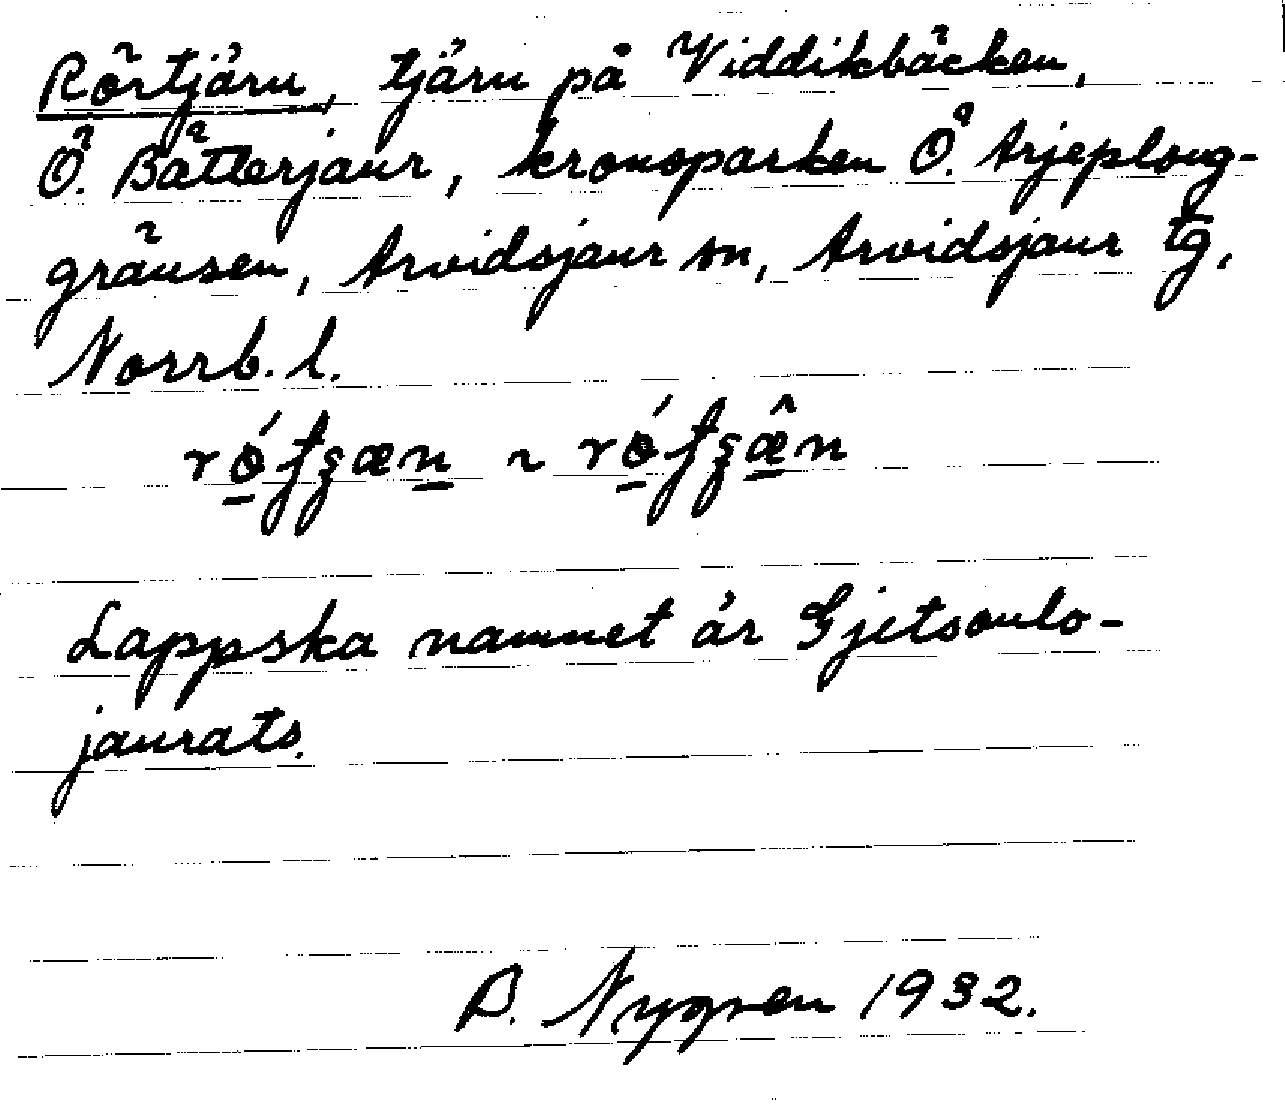 Rörtjärn, tjärn på Viddikbäcken,
Ö. Bätterjaur, kronoparken Ö. Arjeploug-
gränsen, Arvidsjaur sn, Arvidsjaur tg,
Norrb. l.
~
Lappska namnet är Gjetsoulo-
jaurats.
B. Nygren 1932.